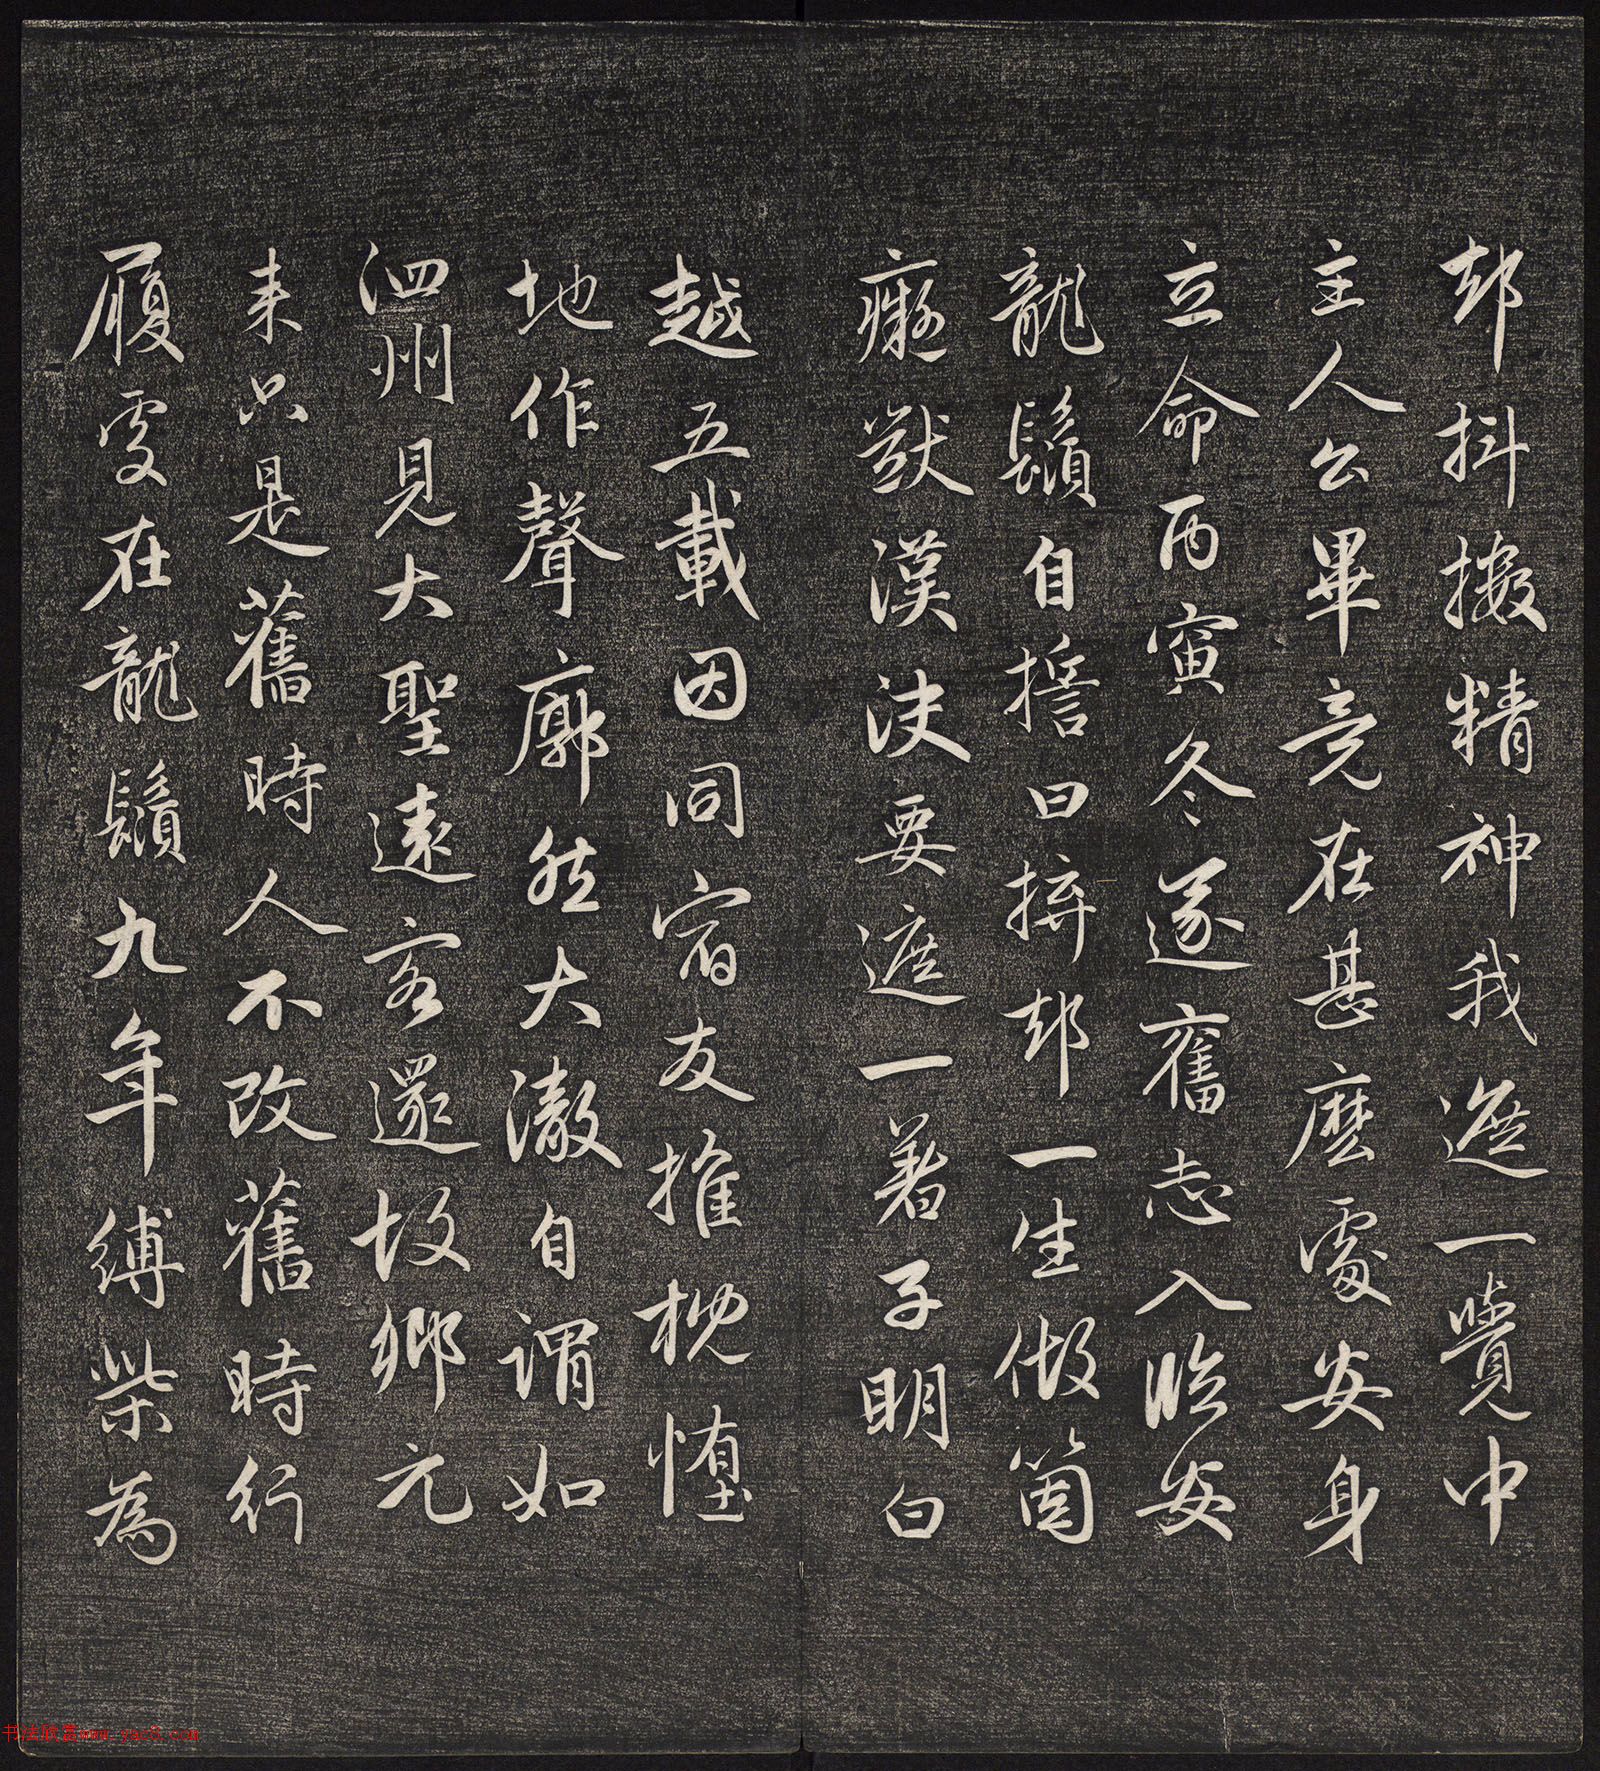 却抖擻精神我遮一覺中
主人公畢竟在甚麽處安身
立命丙寅冬遂奮志入臨安
龍鬚自誓曰拚却一生做箇
癡獃漢決要遮一著子明白
越五載因同宿友推枕墮
地作聲廓然大澈自謂如
泗州見大聖遠客還故鄉元
來只是舊時人不改舊時行
履處在龍鬚九年縛柴為
书法欣赏www.yac8.com